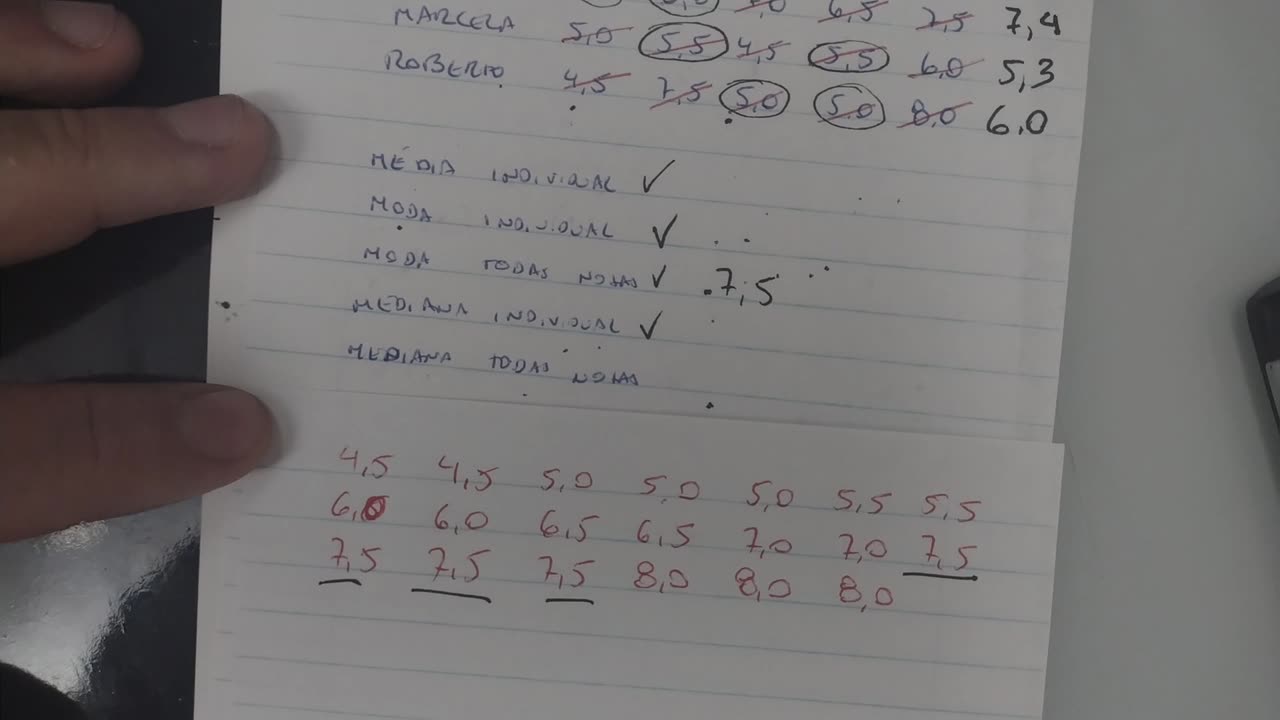 6,5 7,5 7,4
MARCELA 5,0 5,5 4,5 5,5 6,0 5,3
ROBERTO 4,5 7,5 5,0 5,0 8,0 6,0
MÉDIA INDIVIDUAL ✓
MODA INDIVIDUAL ✓
MODA TODAS NOTAS ✓ 7,5
MEDIANA INDIVIDUAL ✓
MEDIANA TODAS NOTAS
4,5 4,5 5,0 5,0 5,0 5,5 5,5
6,0 6,0 6,5 6,5 7,0 7,0 7,5
7,5 7,5 7,5 8,0 8,0 8,0